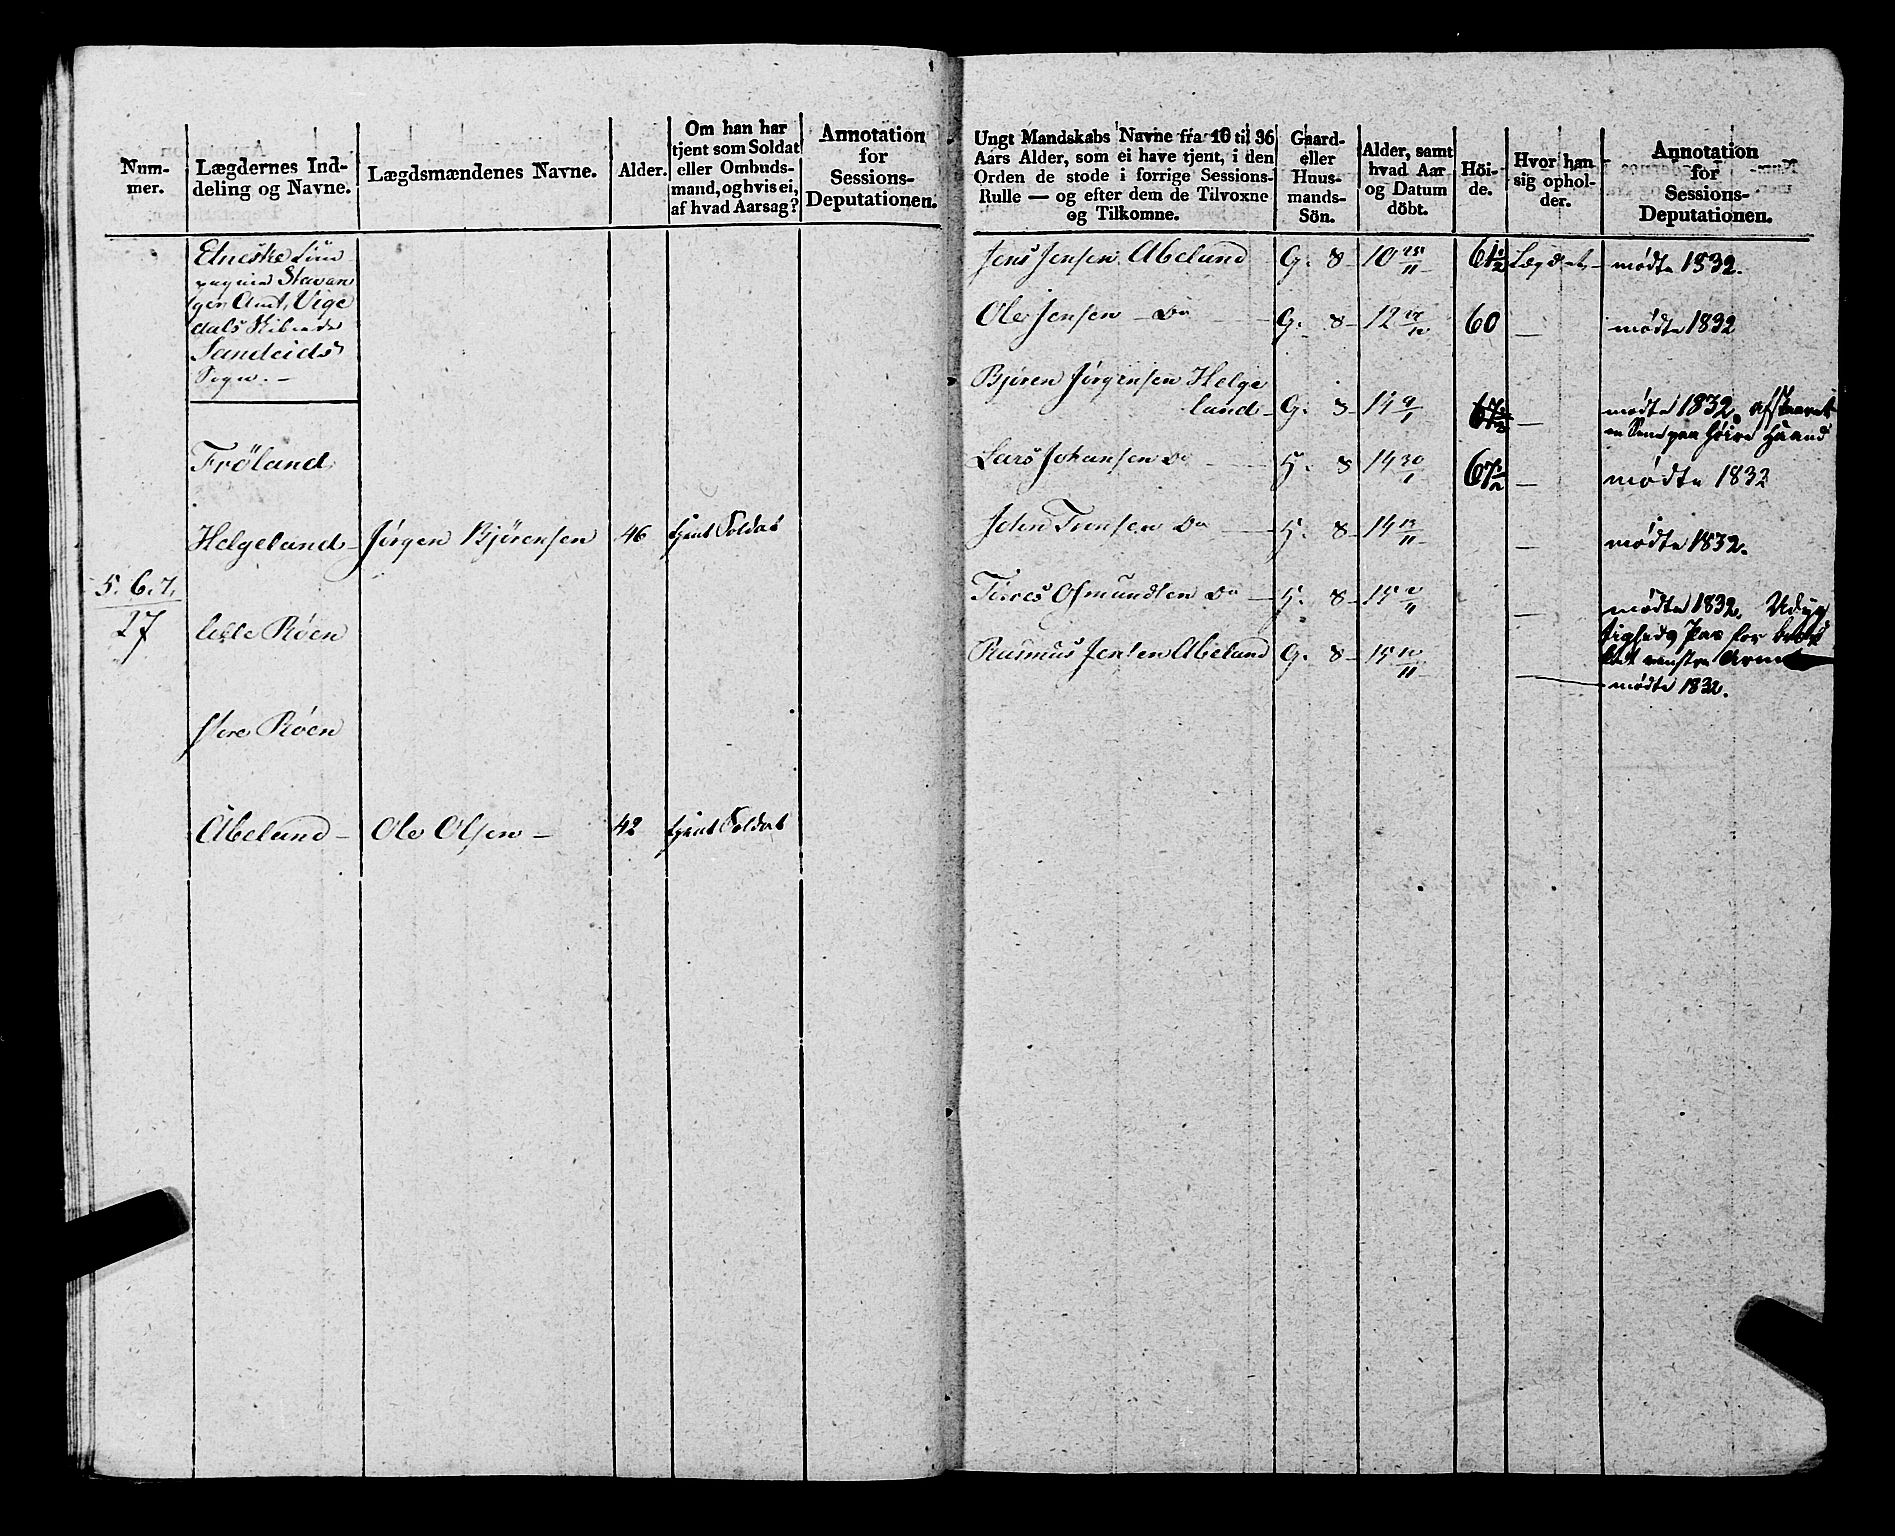 Num-
mer.
Lægdernes Ind-
deling og Navne.
Lægdsmændenes Navne.
Alder.
Om han har
tjent som Soldat
eller Ombuds-
mand, og hvis ei,
af hvad Aarsag?
Annotation
for
Sessions-
Deputationen.
Etneske Com
pagnie Stavan
ger Amt, Vige
dals Skibrede
Sandeids
Sogn. –
Fröland
Helgeland – Jørgen Bjørensen 46 tjent Soldat
5. 6. 7.
27
lille Røen
store Røen
Abeland – Ole Olsen – 42 tjent Soldat
Ungt Mandskabs Navne fra 16 til 36
Aars Alder, som ei have tjent, i den
Orden de stode i forrige Sessions-
Rulle — og efter dem de Tilvoxne
og Tilkomne.
Gaard-
eller
Huus-
mands-
Sön.
Alder, samt
hvad Aar
og Datum
döbt.
Höi-
de.
Hvor han
sig ophol-
der.
Annotation
for
Sessions-
Deputationen.
Jens Jensen Abeland G. 8 – 10 25/11 61 1/2 Lægdet – mødte 1832.
Ole Jensen – Do G. 8 – 12 60 – mødte 1832
Bjøren Jørgensen Helge
land – G. 8 – 14 9/1 67 1/2 – mødte 1832. afskaaret
en Sene paa höire Haand
Lars Johansen Do H. 8 14 30/1 67 1/2 – mødte 1832
John Do H. 8 – 14 – mødte 1832.
Osmundsen Do H. 8 – 15 – mødte 1832. Udyg
tigheds Pas for
venstre Arm
Rasmus Jensen Abeland G. 8 – 15 – mødte 1832.